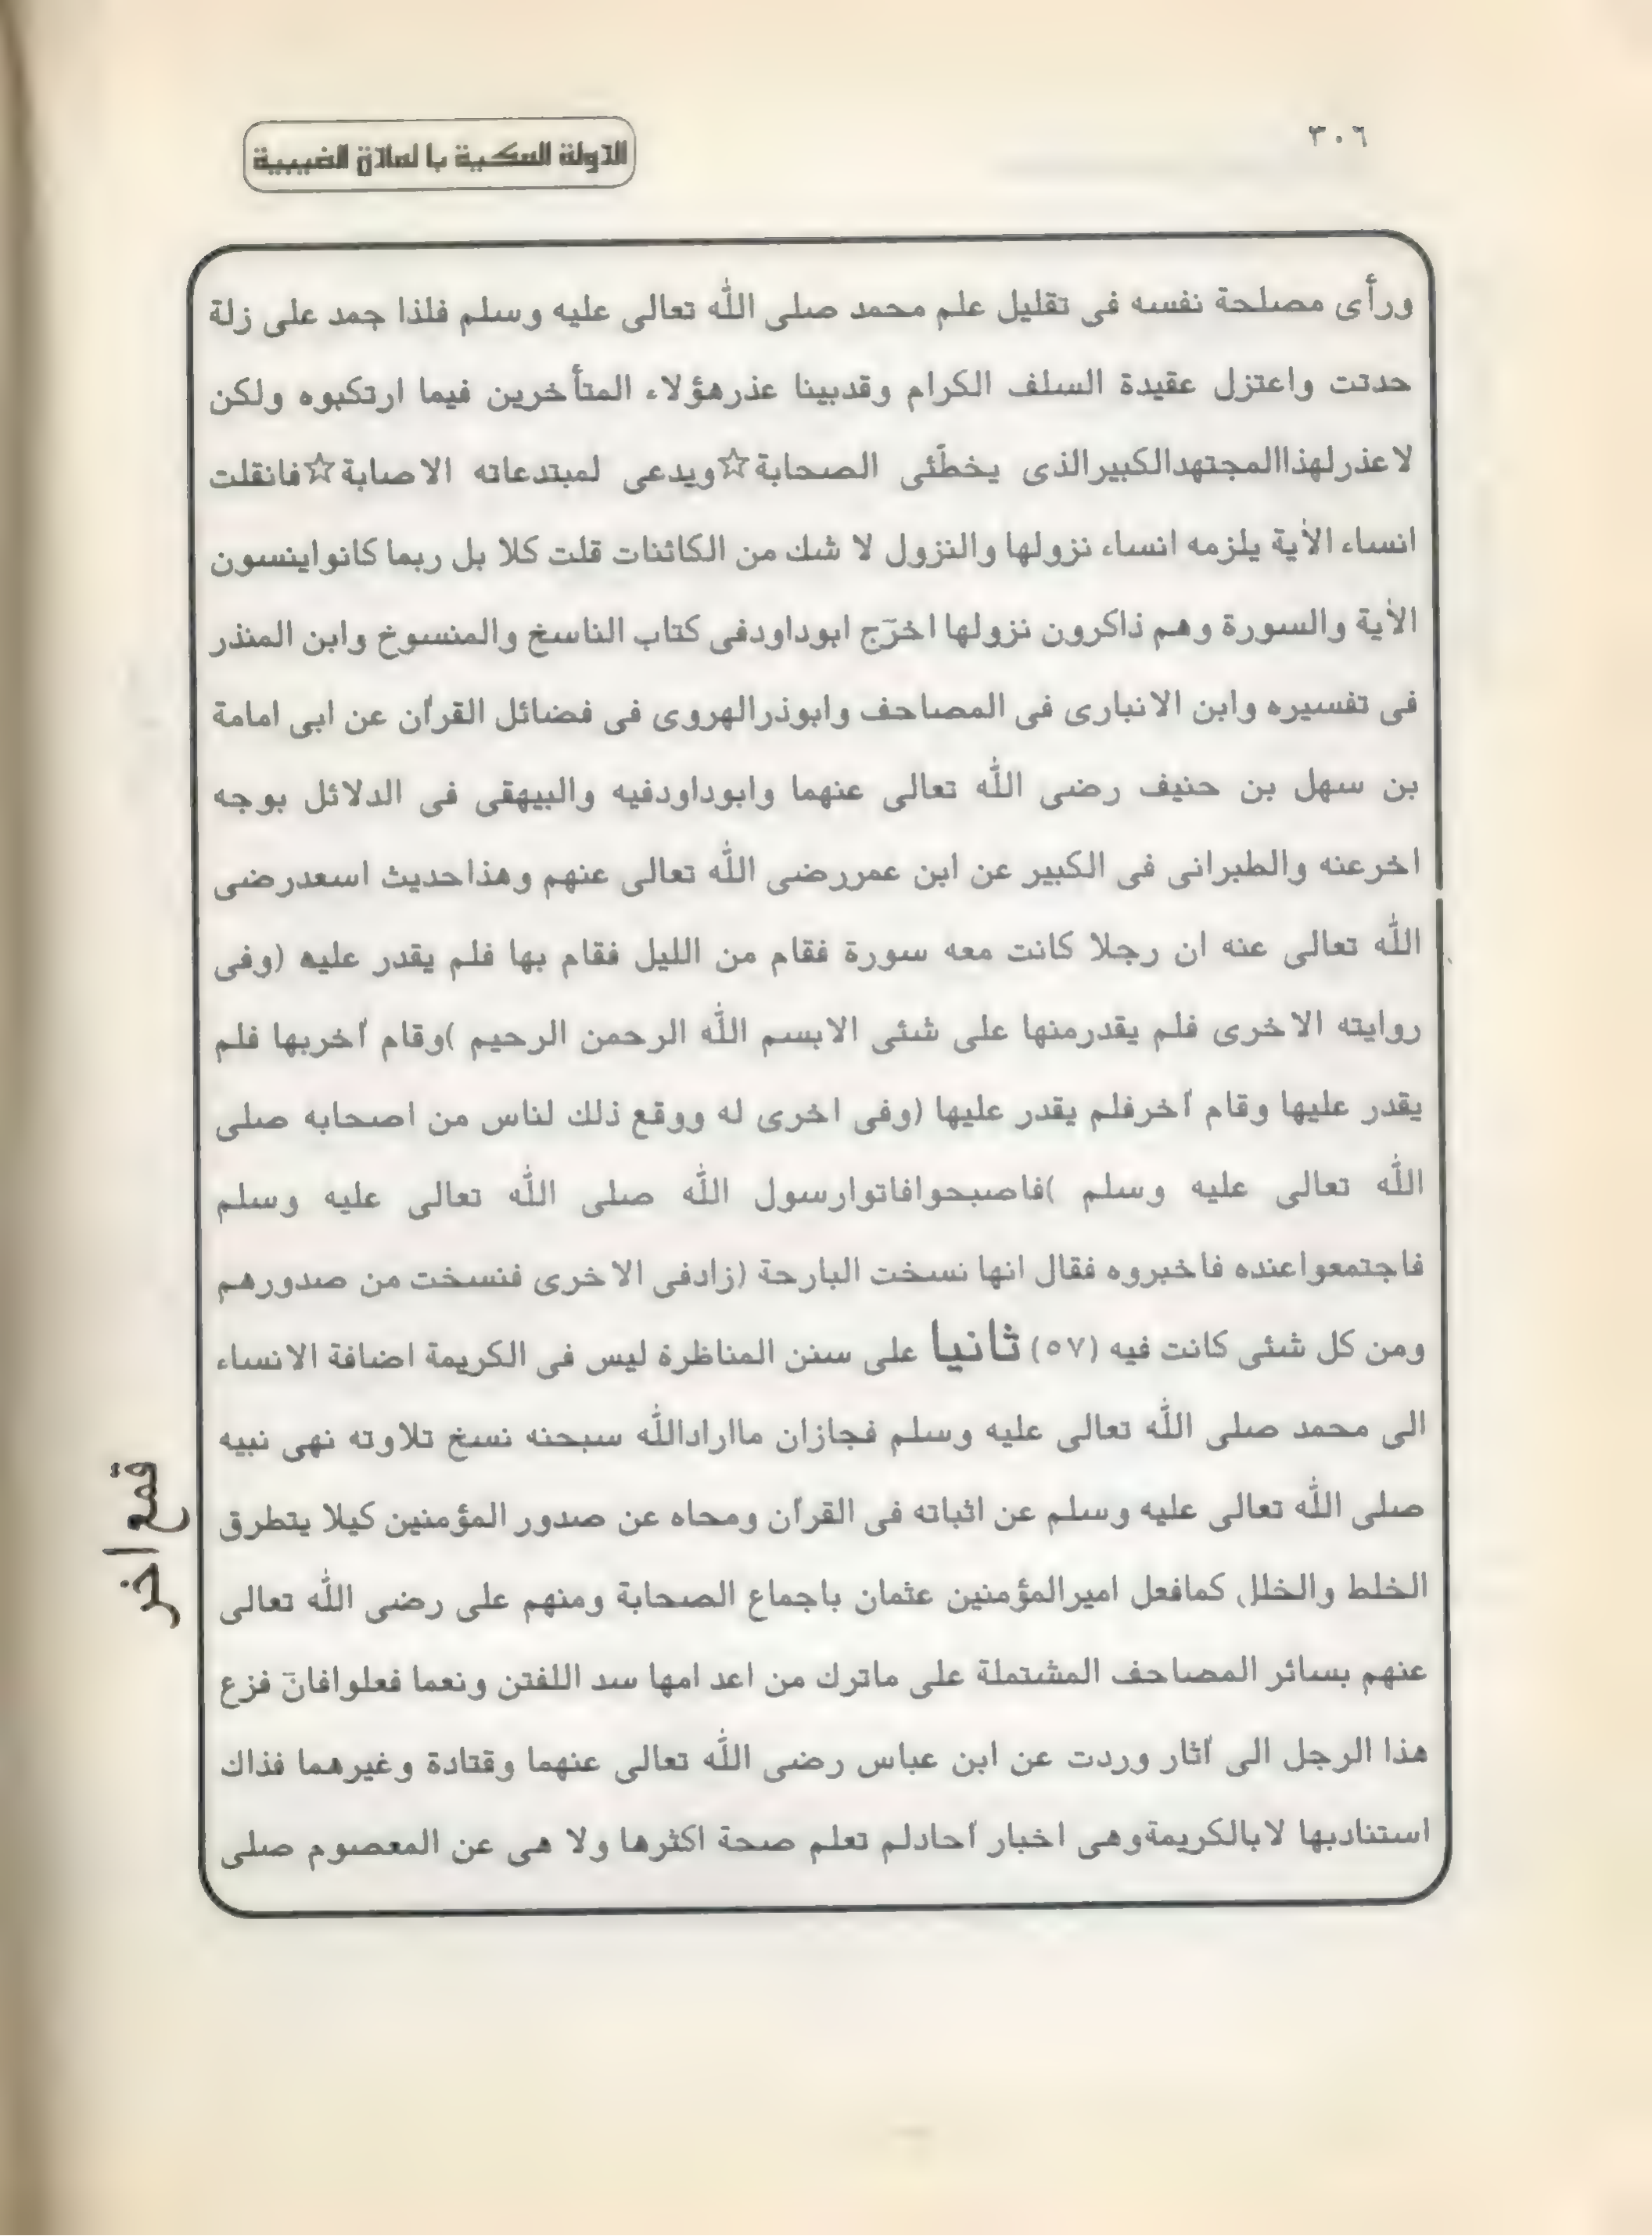 ٣٠٦
الدولة المكية با لمادة الغيبية
ورأى مصلحة نفسه فى تقليل علم محمد صلى اللّٰه تعالى عليه وسلم فلذا جمد على زلة
حدثت واعتزل عقيدة السلف الكرام وقدبينا عذرهؤلاء المتأخرين فيما ارتكبوه ولكن
لاعذرلهذاالمجتهدالكبيرالذى يخطّئى الصحابة☆ويدعى لمبتدعاته الاصابة☆فانقلت
انساء الأية يلزمه انساء نزولها والنزول لا شك من الكائنات قلت كلا بل ربما كانواينسون
الأية والسورة وهم ذاكرون نزولها اخرّج ابوداودفى كتاب الناسخ والمنسوخ وابن المنذر
فى تفسيره وابن الانبارى فى المصاحف وابوذرالهروى فى فضائل القرأن عن ابى امامة
بن سهل بن حنيف رضى اللّٰه تعالى عنهما وابوداودفيه والبيهقى فى الدلائل بوجه
اخرعنه والطبرانى فى الكبير عن ابن عمررضى اللّٰه تعالى عنهم وهذاحديث اسعدرضى
اللّٰه تعالى عنه ان رجلا كانت معه سورة فقام من الليل فقام بها فلم يقدر عليه (وفى
روايته الاخرى فلم يقدرمنها على شئى الابسم اللّٰه الرحمن الرحيم )وقام أخربها فلم
يقدر عليها وقام أخرفلم يقدر عليها (وفى اخرى له ووقع ذلك لناس من اصحابه صلى
اللّٰه تعالى عليه وسلم )فاصبحوافاتوارسول اللّٰه صلى اللّٰه تعالى عليه وسلم
فاجتمعواعنده فاخبروه فقال انها نسخت البارحة (زادفى الاخرى فنسخت من صدورهم
ومن كل شئى كانت فيه (٥٧) ثانيا على سنن المناظرة ليس فى الكريمة اضافة الانساء
الى محمد صلى اللّٰه تعالى عليه وسلم فجازان مااراداللّٰه سبحنه نسخ تلاوته نهى نبيه
صلى اللّٰه تعالى عليه وسلم عن اثباته فى القرأن ومحاه عن صدور المؤمنين كيلا يتطرق
الخلط والخلل كمافعل اميرالمؤمنين عثمان باجماع الصحابة ومنهم على رضى اللّٰه تعالى
عنهم بسائر المصاحف المشتملة على ماترك من اعد امها سد اللفتن ونعما فعلوافانّ فزع
هذا الرجل الى أثار وردت عن ابن عباس رضى اللّٰه تعالى عنهما وقتادة وغيرهما فذاك
استنادبها لابالكريمةوهى اخبار أحادلم تعلم صحة اكثرها ولا هى عن المعصوم صلى
قمع اخر